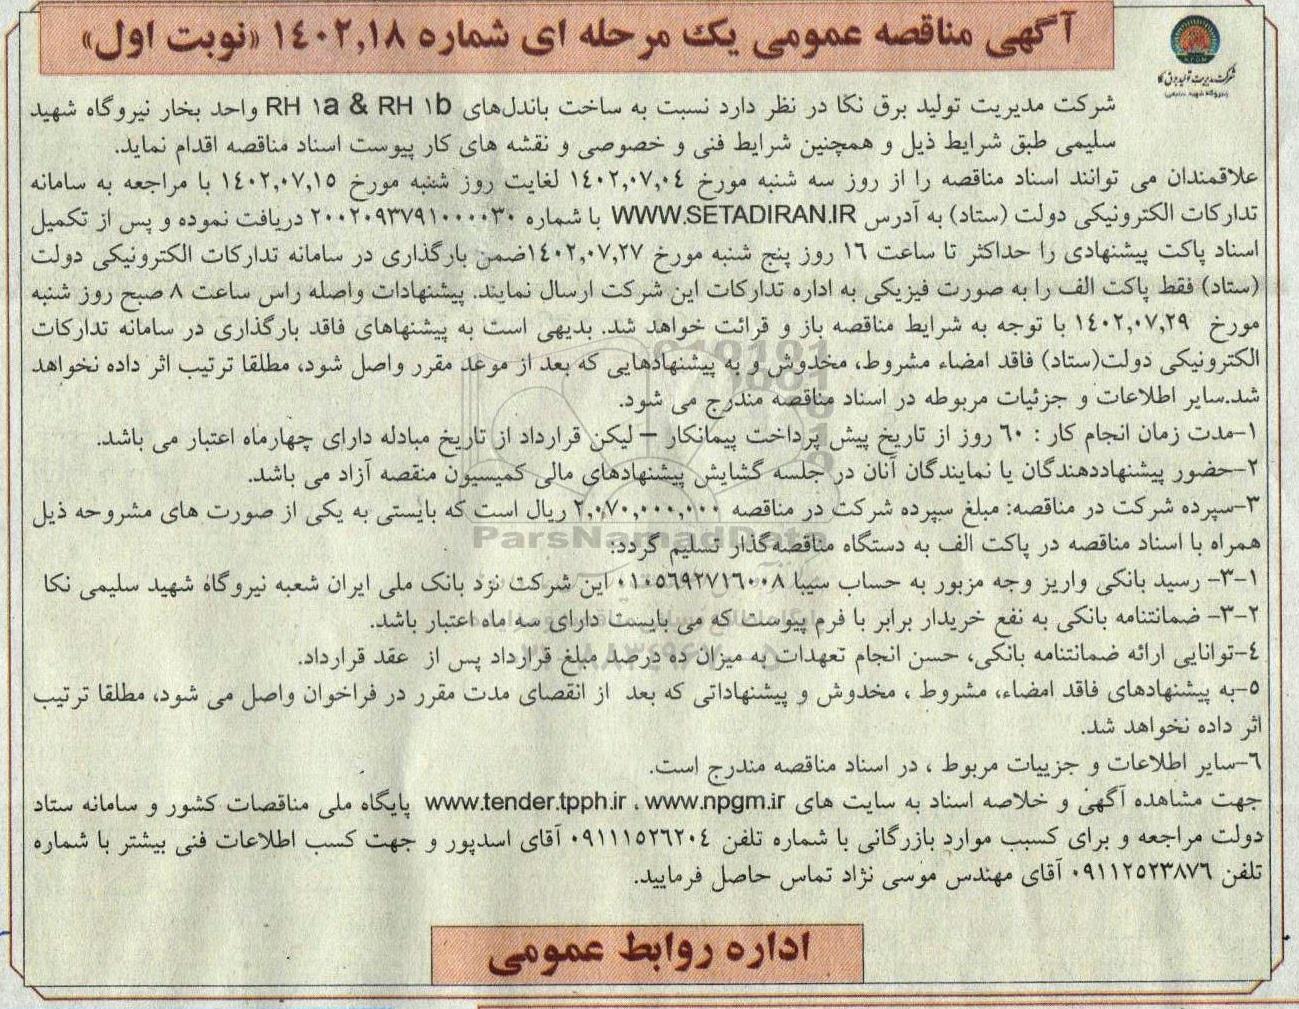 آگهی مناقصه عمومی یک مرحله ای شماره ۱۴۰۲,۱۸ «نوبت اول»
شرکت مدیریت تولید برق نکا
شرکت مدیریت تولید برق نکا در نظر دارد نسبت به ساخت باندل‌های RH ۱a & RH ۱b واحد بخار نیروگاه شهید
سلیمی طبق شرایط ذیل و همچنین شرایط فنی و خصوصی و نقشه های کار پیوست اسناد مناقصه اقدام نماید.
علاقمندان می توانند اسناد مناقصه را از روز سه شنبه مورخ ۱۴۰۲,۰۷,۰۴ لغایت روز شنبه مورخ ۱۴۰۲,۰۷,۱۵ با مراجعه به سامانه
تدارکات الکترونیکی دولت (ستاد) به آدرس WWW.SETADIRAN.IR با شماره ۲۰۰۲۰۹۳۷۹۱۰۰۰۰۳۰ دریافت نموده و پس از تکمیل
اسناد پاکت پیشنهادی را حداکثر تا ساعت ۱۶ روز پنج شنبه مورخ ۱۴۰۲,۰۷,۲۷ضمن بارگذاری در سامانه تدارکات الکترونیکی دولت
(ستاد) فقط پاکت الف را به صورت فیزیکی به اداره تدارکات این شرکت ارسال نمایند. پیشنهادات واصله راس ساعت ۸ صبح روز شنبه
مورخ ۱۴۰۲,۰۷,۲۹ با توجه به شرایط مناقصه باز و قرائت خواهد شد. بدیهی است به پیشنهاهای فاقد بارگذاری در سامانه تدارکات
الکترونیکی دولت(ستاد) فاقد امضاء مشروط، مخدوش و به پیشنهادهایی که بعد از موعد مقرر واصل شود، مطلقا ترتیب اثر داده نخواهد
شد.سایر اطلاعات و جزئیات مربوطه در اسناد مناقصه مندرج می شود.
۱-مدت زمان انجام کار : ۶۰ روز از تاریخ پیش پرداخت پیمانکار – لیکن قرارداد از تاریخ مبادله دارای چهارماه اعتبار می باشد.
۲-حضور پیشنهاددهندگان یا نمایندگان آنان در جلسه گشایش پیشنهادهای مالی کمیسیون منقصه آزاد می باشد.
۳-سپرده شرکت در مناقصه: مبلغ سپرده شرکت در مناقصه ۲,۰۷۰,۰۰۰,۰۰۰ ریال است که بایستی به یکی از صورت های مشروحه ذیل
همراه با اسناد مناقصه در پاکت الف به دستگاه مناقصه‌گذار تسلیم گردد:
۳-۱- رسید بانکی واریز وجه مزبور به حساب سیبا ۰۱۰۵۶۹۲۷۱۶۰۰۸ این شرکت نزد بانک ملی ایران شعبه نیروگاه شهید سلیمی نکا
۳-۲- ضمانتنامه بانکی به نفع خریدار برابر با فرم پیوست که می بایست دارای سه ماه اعتبار باشد.
۴-توانایی ارائه ضمانتنامه بانکی، حسن انجام تعهدات به میزان ده درصد مبلغ قرارداد پس از عقد قرارداد.
۵-به پیشنهادهای فاقد امضاء، مشروط ، مخدوش و پیشنهاداتی که بعد از انقصای مدت مقرر در فراخوان واصل می شود، مطلقا ترتیب
اثر داده نخواهد شد.
۶-سایر اطلاعات و جزییات مربوط ، در اسناد مناقصه مندرج است.
جهت مشاهده آگهی و خلاصه اسناد به سایت های www.tender.tpph.ir ، www.npgm.ir پایگاه ملی مناقصات کشور و سامانه ستاد
دولت مراجعه و برای کسبب موارد بازرگانی با شماره تلفن ۰۹۱۱۱۵۲۶۲۰۴ آقای اسدپور و جهت کسب اطلاعات فنی بیشتر با شماره
تلفن ۰۹۱۱۲۵۲۳۸۷۶ آقای مهندس موسی نژاد تماس حاصل فرمایید.
اداره روابط عمومی
ParsNamadData